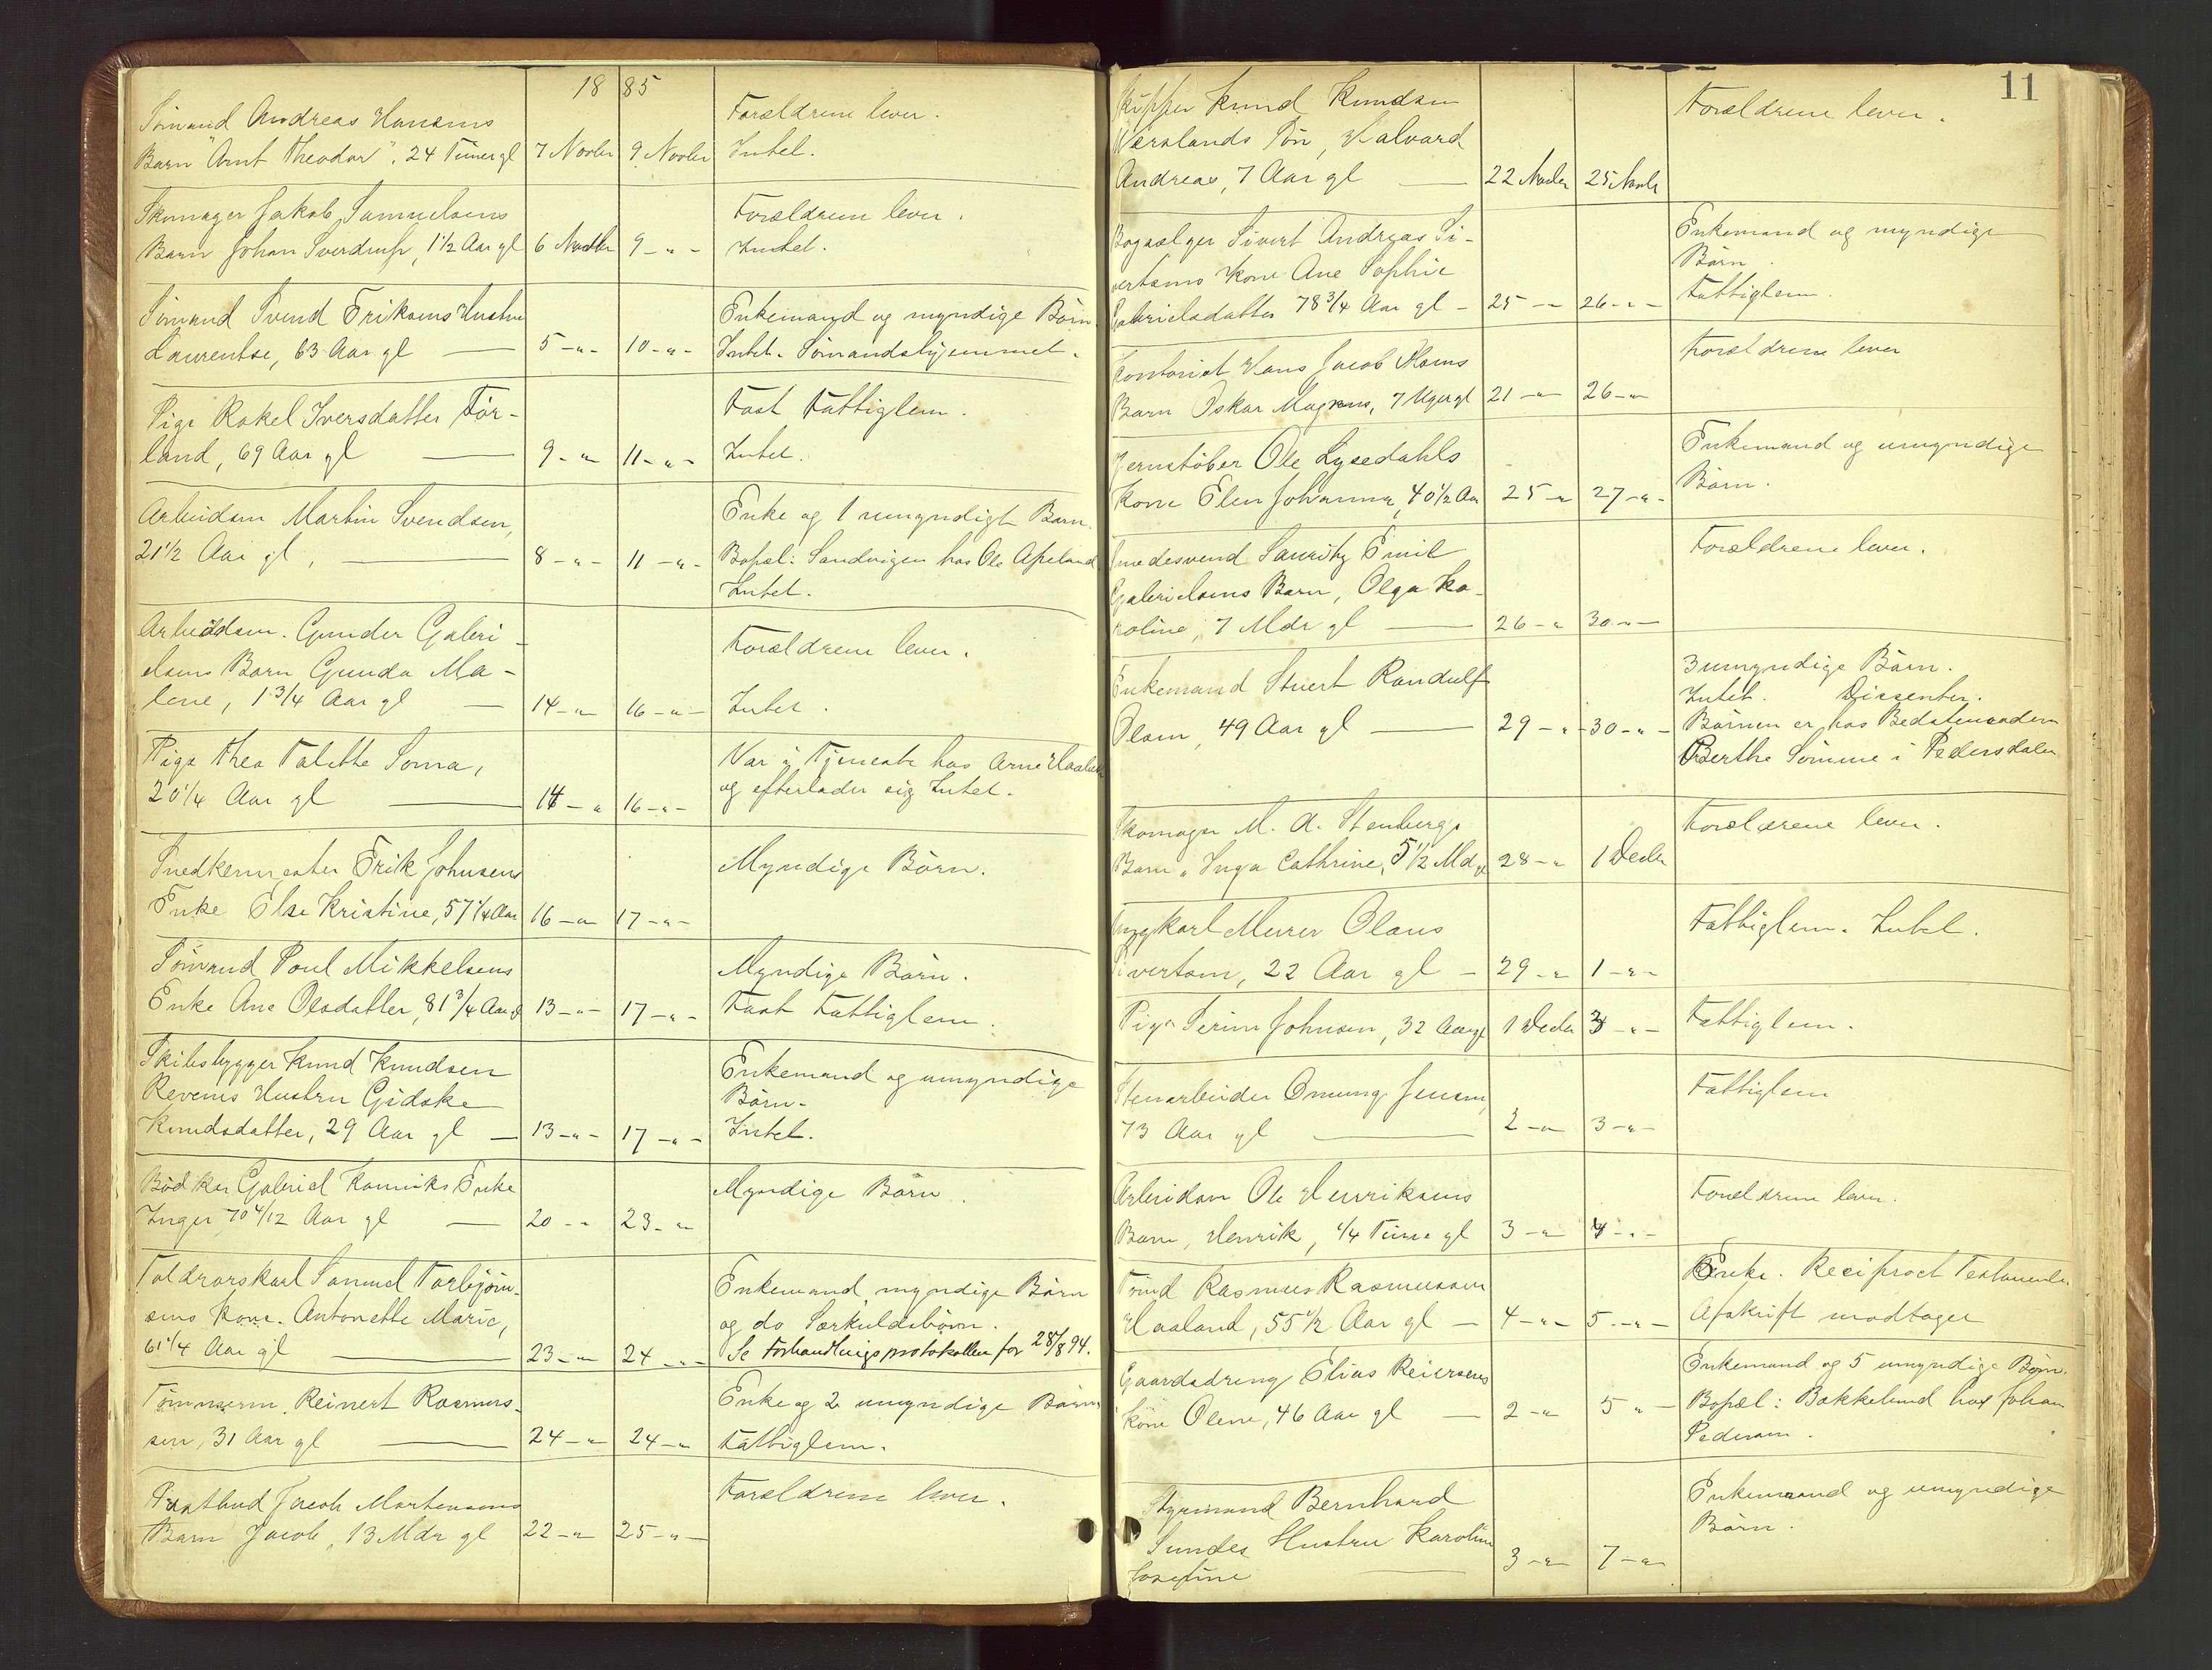 18 85
Sömand Andreas Hansens
Barn "Arnt Theodor". 24 Timer gl 7 Novbr 9 Novbr
Forældrene lever.
Intet.
Skomager Jakob Samuelsens
Barn Johan Sverdrup, 1 1/2 Aar gl 6 Novbr 9 - " -
Forældrene lever.
Intet.
Sömand Svend Eriksens Hustru
Laurentse, 63 Aar gl — 5 - " - 10 - " -
Enkemand og myndige Börn.
Intet. Sömandshjemmet.
Pige Rakel Iversdatter För-
land, 69 Aar gl — 9 - " 11 - " -
Fast Fattiglem.
Intet.
Arbeidsm Martin Svendsen,
21 1/2 Aar gl, — 8 - " - 11 - " -
Enke og 1 umyndigt Barn.
Bopæl: Sandvigen hos Ole Apeland
Intet.
Arbeidsm. Gunder Gabri-
elsens Barn Gunda Ma-
lene, 1 3/4 Aar gl — 14 - " 16 - " -
Forældrene lever.
Intet.
Pige Thea Talette Soma,
20 1/4 Aar gl — 14 - " 16 - " -
Var i Tjeneste hos Arne
og efterlader sig Intet.
Snedkermester Erik Johnsens
Enke Else Kristine, 57 1/4 Aar 16 - " 17 - " -
Myndige Börn.
Sömand Poul Mikkelsens
Enke Ane Olsdatter, 81 3/4 Aar gl 13 - " - 17 - " -
Myndige Börn.
Fast Fattiglem.
Skibsbygger Knud Knudsen
Revems Hustru Gidske
Knudsdatter, 29 Aar gl — 13 - " - 17 - " -
Enkemand og umyndige
Börn.
Intet.
Bödker Gabriel Kanniks Enke
Inger 70 4/12 Aar gl — 20 - " 23 - "
Myndige Börn.
Toldrorskarl Samuel Torbjörn-
sens Kone. Antonette Marie,
61 1/4 Aar gl — 23 - " 24 - " -
Enkemand, myndige Börn
og do Særkuldsbörn.
Se Forhandlingsprotokollen for 28/8 94.
Tömmerm. Reinert Rasmus-
sen, 31 Aar gl — 24 - " 24 - "
Enke og 2 umyndige Börn
Fattiglem.
Postbud Jacob Mortensens
Barn Jacob, 13 Mdr gl 22 - " 25 - " -
Forældrene lever.
11
Skipper Knud Knudsen
Værslands Sön, Halvard
Andreas, 7 Aar gl — 22 Novbr 25 Novbr
Forældrene lever.
Bogsælger Sivert Andreas Si-
vertsens Kone Ane Sophie
Gabrielsdatter 78 3/4 Aar gl - 25 - " 26 - " -
Enkemand og myndige
Börn.
Fattiglem.
Kontorist Hans Jacob Olsens
Barn Oskar Magnus, 7 Uger gl 21 - " 26 - "
Forældrene lever
Jernstöber Ole Lysedahls
Kone Elen Johanna, 40 1/2 Aar 25 - " 27 - " -
Enkemand og umyndige
Börn.
Smedesvend Lauritz Emil
Gabrielsens Barn, Olga Ka-
roline, 7 Mdr gl — 26 - " 30 - " -
Forældrene lever.
Enkemand Stuert Randulf
Olsen, 49 Aar gl — 29 - " 30 - " -
3 umyndige Börn.
Intet. Dissenter.
Börnen er hos Bedstemoderen
Berthe Sömme i Pedersdalen
Skomager M. A. Stenbergs
Barn, Inga Cathrine, 5 1/2 Mdr gl 28 - " 1 Decbr
Forældrene lever.
Ungkarl Murer Olaus
Sivertsen, 22 Aar gl - 29 - " 1 - " -
Fattiglem. Intet.
Pige Serine Johnsen, 32 Aar gl 1 Decbr 3 - " -
Fattiglem.
Stenarbeider Omung Jensen,
73 Aar gl — 2 - " 3 - " -
Fattiglem
Arbeidsm Ole Henriksens
Barn, Henrik, 1/4 Time gl 3 - " 4 - " -
Forældrene lever.
Rasmus Rasmussen
Haaland, 55 1/2 Aar gl — 4 - " - 5 - " -
Enke. Reciproct Testamente
Afskrift modtaget
Gaardsdreng Elias Reiersens
Kone Olene, 46 Aar gl — 2 - " 5 " -
Enkemand og 5 umyndige Börn.
Bopæl: Bakkelund hos Johan
Pedersen.
Styrmand Bernhard
Sundes Hustru Karoline
Josefine — 3 - " 7 - "
Enkemand og umyndige
Börn.